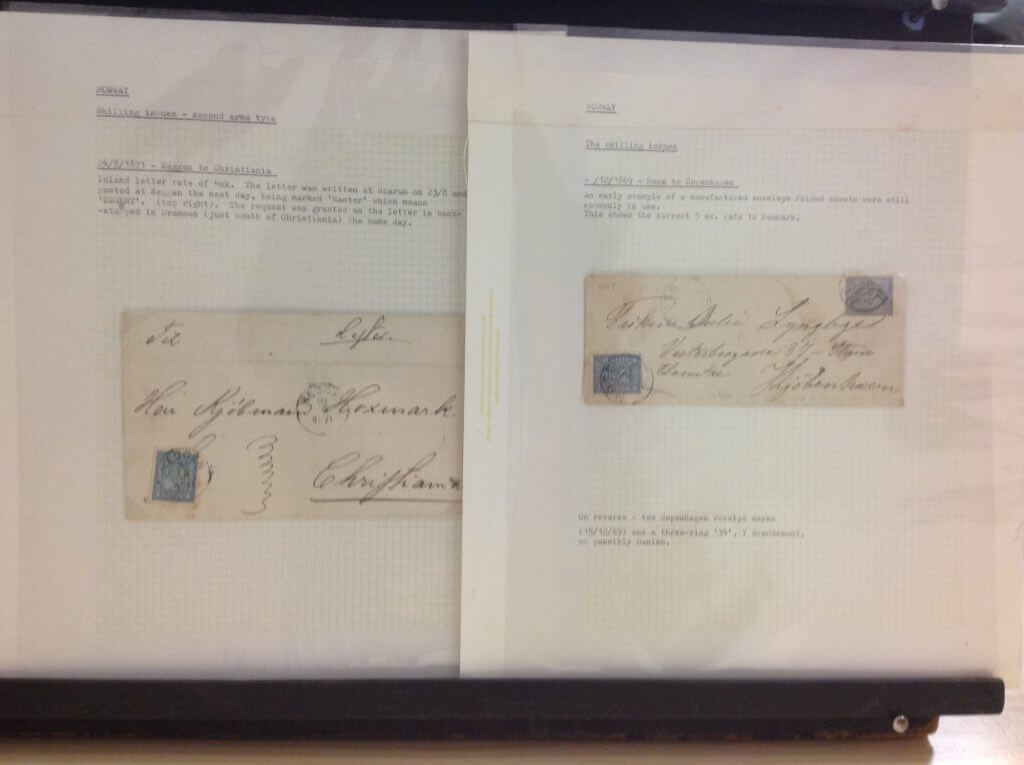 NORWAY
Skilling issues - second arms type
24/8/1871 - Heggen to Christiania
Inland letter rate of 4sk. The letter was written at Snarum on 23/8 and
posted at Heggen the next day, being marked 'Haster' which means
'URGENT'. (top right). The request was granted as the letter is back-
-stamped in Drammen (just south of Christiania) the same day.
Til
Haster.
Herr Kjöbmann Hoxmark.
Christiania
NORWAY
The skilling issues
- /12/1869 - Moss to Copenhagen
An early example of a manufactured envelope folded sheets were still
commonly in use.
This shows the correct 5 sk. rate to Denmark.
Lyngbye
Vesterbrogade 37 -
Kjöbenhavn
On reverse - two Copenhagen receipt marks
(15/12/69) and a three-ring '34', ? Svanesund,
or possibly Danish.